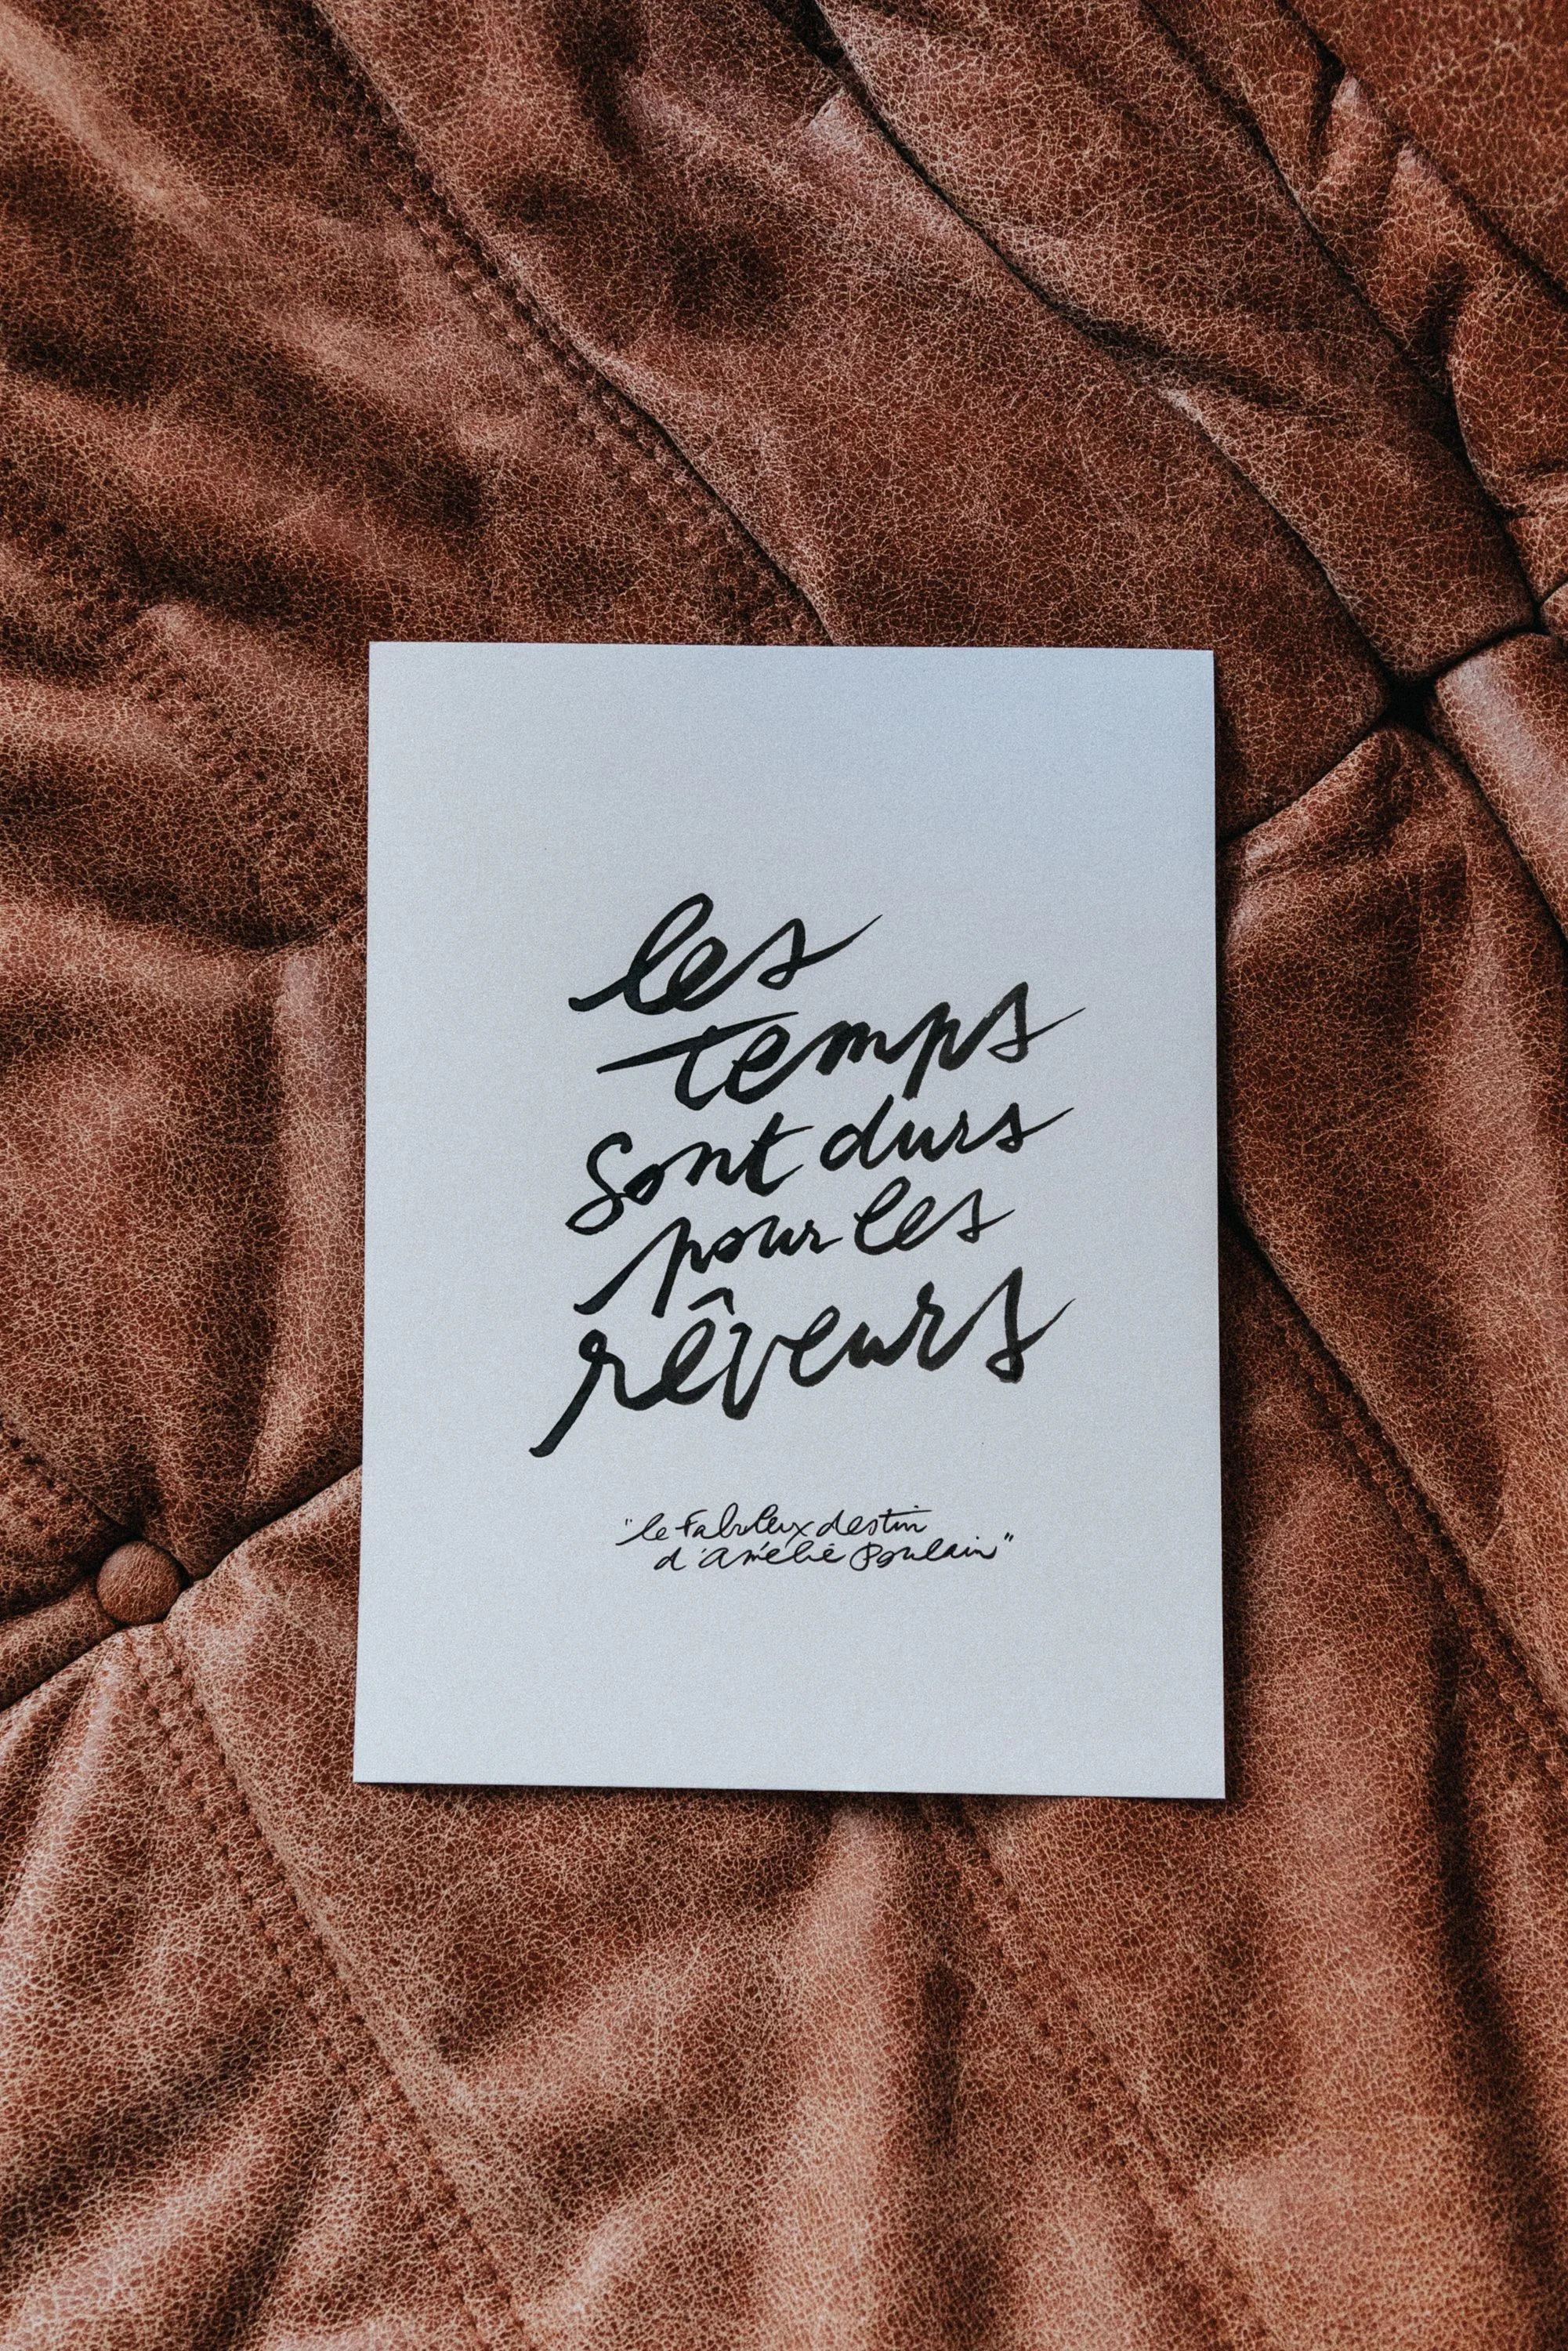 les
temps
sont durs
pour les
rêveurs
"le Fabuleux destin
d'Amélie Poulain"